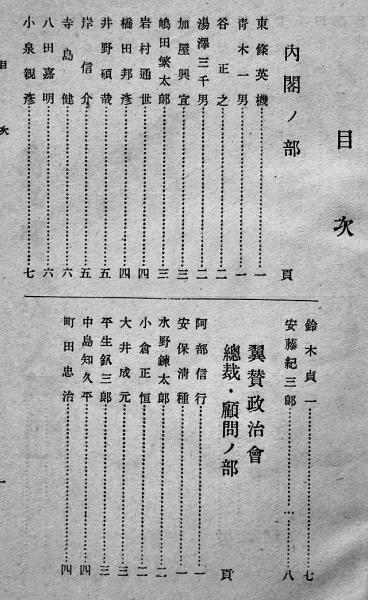 目次
內閣ノ部
頁
東條英機……一
青木一男……一
谷正之……二
湯澤三千男……二
加屋興宣……三
嶋田繁太郎……三
岩村通世……四
橋田邦彥……四
井野碩哉……五
岸信介……五
寺島健……六
八田嘉明……六
小泉親彥……七
鈴木貞一……七
安藤紀三郎……八
翼贊政治會
總裁・顧問ノ部
頁
阿部信行……一
安保淸種……一
水野鍊太郎……二
小倉正恒……二
大井成元……三
平生釟三郎……三
中島知久平……四
町田忠治……四
目次
一